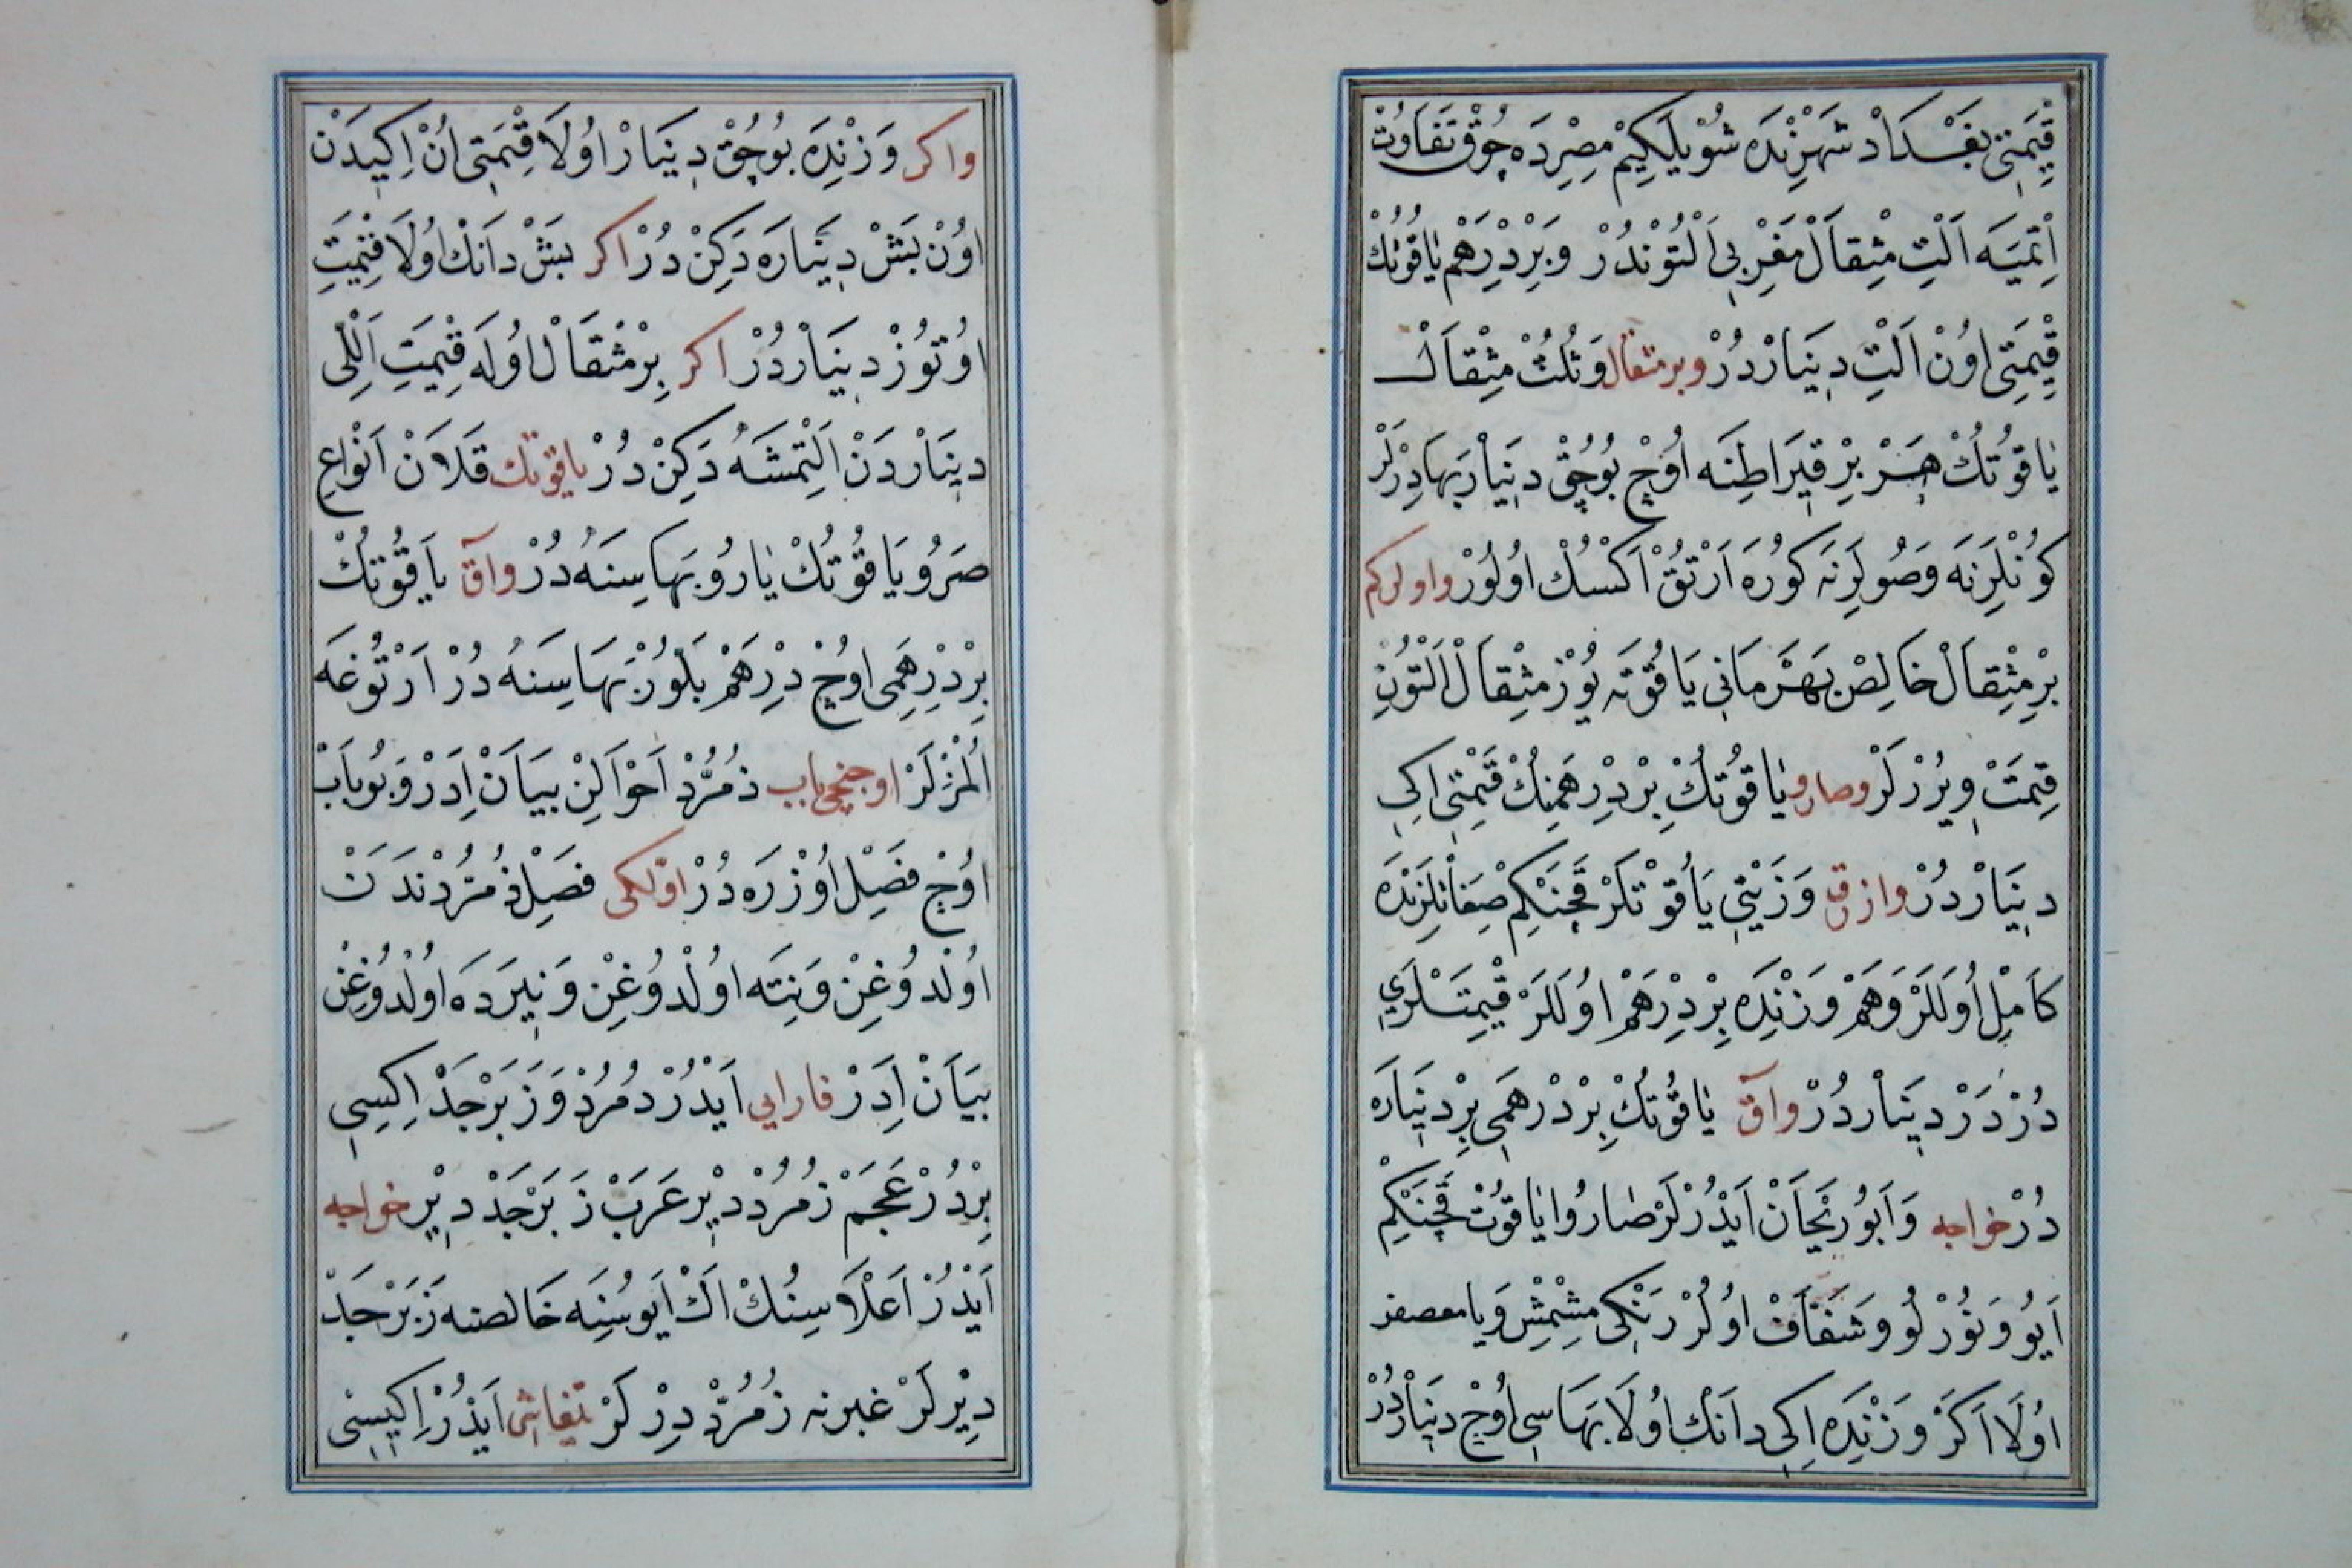 قِيمَتِى بَغْدَادْ شَهْرِنْدَه شُويْلَكِيمْ مِصِرْدَه چُوقْ تَفَاوُتْ
اِتْمَيَه اَلْتِ مِثْقَالْ مَغْرِبِى اَلْتُوْنْدُرْ وَبِرْ دِرْهَمْ يَاقُوتُكْ
قِيمَتِى اُونْ اَلْتِ دِينَارْدُرْ وبر مثقال وَثُلُثْ مِثْقَالْ
يَاقُوتُكْ هَرْ بِرْ قِيرَاطِنَه اُوچْ بُوچُقْ دِينَارْ بَهَا دِرْلَرْ
كُونْلَرِنَه وَصُولَرِنَه كُورَه اَرْتُقْ اَكْسُكْ اُولُورْ واولركم
بِرْ مِثْقَالْ خَالِصْ بَهْرَمَانِي يَاقُوتَه يُوزْ مِثْقَالْ اَلْتُونْ
قِيمَتْ وِيرُرْلَرْ وصارو يَاقُوتُكْ بِرْ دِرْهَمِنُكْ قِيمَتِى اِكِى
دِينَارْدُرْ وازرق وَزَيْتِي يَاقُوتْلَرْ قَچَنْكِمْ صِفَاتْلَرِنْدَه
كَامِلْ اُولَلَرْ وَهَمْ وَزْنِدَه بِرْ دِرْهَمْ اُولَلَرْ قِيمَتْلَرِي
دُرْدَرْ دِينَارْدُرْ وآق يَاقُوتُكْ بِرْ دِرْهَمِى بِرْ دِينَارَه
دُرْ خواجه وَاَبُو رَيْحَانْ اَيْدُرْلَرْ صَارُو يَاقُوتْ قَچَنْكِمْ
اَيُو وَنُورْلُو وَشَفَّافْ اُولُرْ رَنْكِى مِشْمِشْ وَيَا معصفر
اُولَا اَكَرْ وَزْنِدَه اِكِى دَانَكْ اُولَا بَهَاسِى اُوچْ دِينَارْدُرْ
واكر وَزْنِدَه بُوچُقْ دِينَارْ اُولَا قِيمَتِى اُنْ اِكِيدَنْ
اُونْ بَشْ دِينَارَه دَكِنْ دُرْ اكر بَشْ دَانَكْ اُولَا قِيمَتِ
اُوتُوزْ دِينَارْدُرْ اكر بِرْ مِثْقَالْ اُولَه قِيمَتِ اَلْلِى
دِينَارْدَنْ اَلْتْمِشَه دَكِنْ دُرْ ياقوتك قَلَانْ اَنْوَاعِ
صَرُو يَاقُوتُكْ يَارُو بَهَاسِنَه دُرْ وآق يَاقُوتُكْ
بِرْ دِرْهَمِى اُوچْ دِرْهَمْ بَلُّورْ بَهَاسِنَه دُرْ اَرْتُوغَه
اَلْمَزْلَرْ اوچنجى باب زُمُرُّدْ اَحْوَالِنْ بَيَانْ اِدَرْ وَبُو بَابْ
اُوچْ فَصِلْ اُوزَرَه دُرْ اوّلكى فَصِلْ زُمُرُّدْ نَدَنْ
اُولْدُوغِنْ وَنِتَه اُولْدُوغِنْ وَنِيرَدَه اُولْدُوغِنْ
بَيَانْ اِدَرْ فارابى اَيْدُرْ زُمُرُدْ وَزَبَرْجَدْ اِكِسِى
بِرْدُرْ عَجَمْ زُمُرُدْ دِيْرْ عَرَبْ زَبَرْجَدْ دِيْرْ خواجه
اَيْدُرْ اَعْلَاسِنُكْ اَكْ اَيُوسُنَه خَالصنه زَبَرْجَدْ
دِيْرْلَرْ غيرنه زُمُرُّدْ دِرْلَرْ تيفاشى اَيْدُرْ اِكِيسِنِى